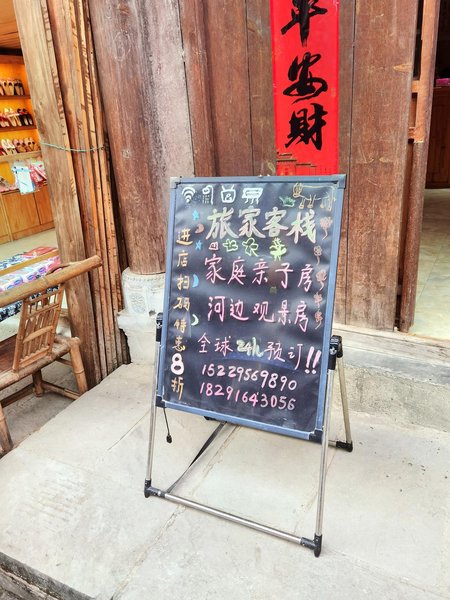 安财
旅家客栈
家庭亲子房
河边观景房
全球24h预订!!
15229569890
18291643056
进店扫码特惠8折